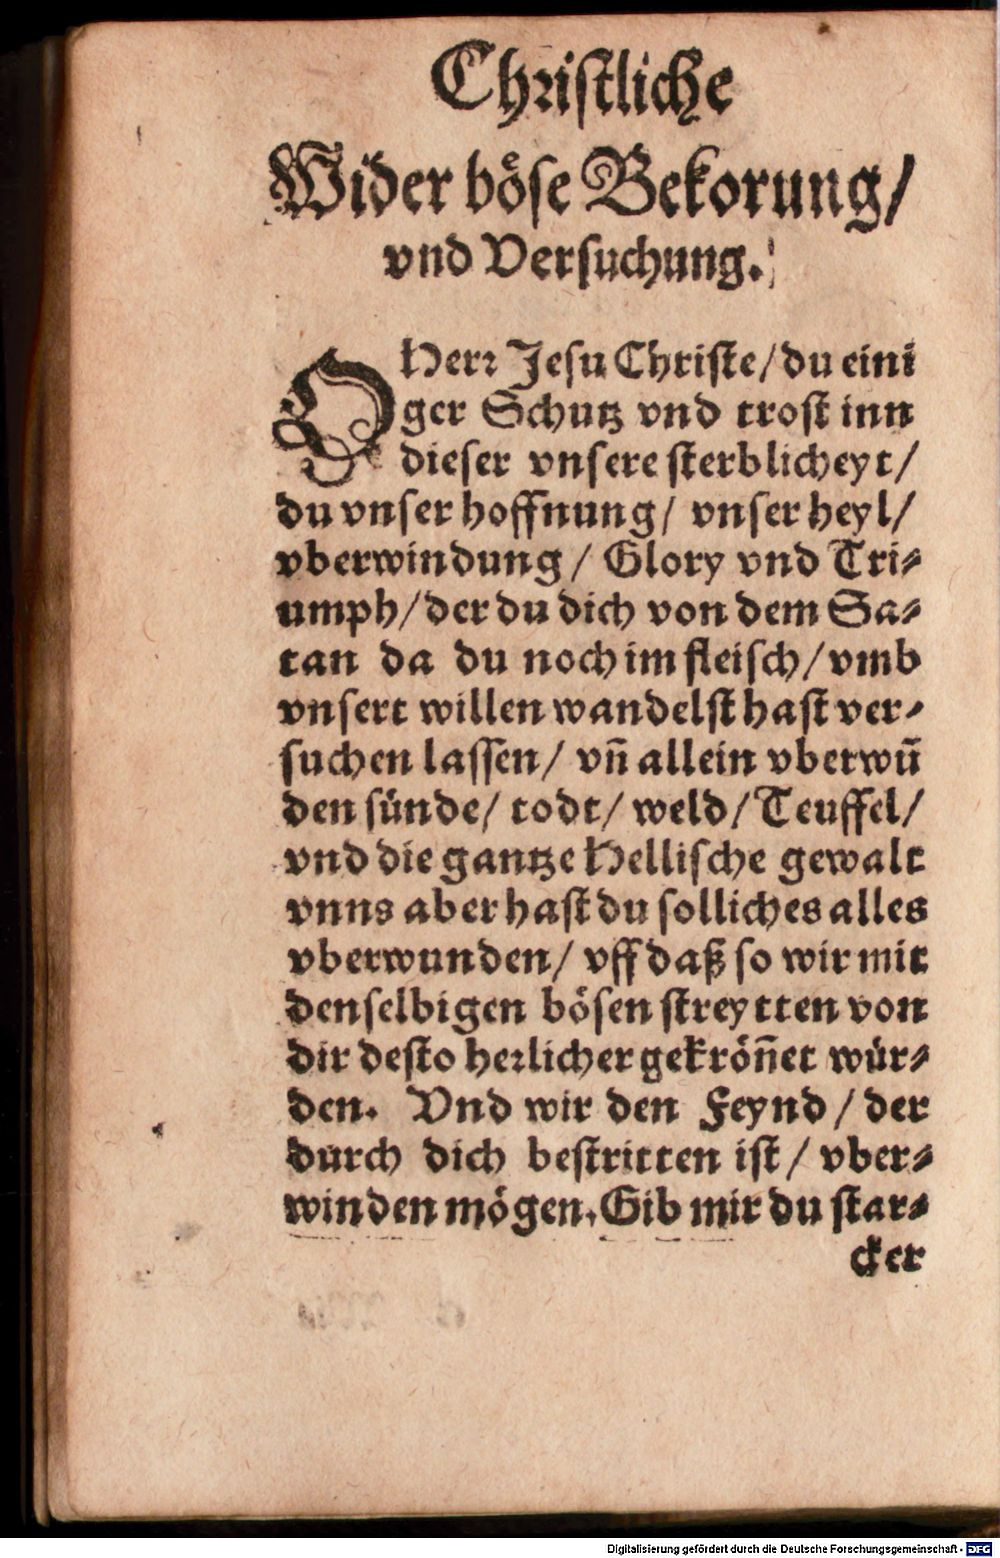 Christliche
Wider böse Bekorung/
vnd Versuchung.
O Herr Jesu Christe/ du eini
ger Schutz vnd trost inn
dieser vnsere sterblicheyt/
du vnser hoffnung/ vnser heyl/
vberwindung/ Glory vnd Tri-
umph/ der du dich von dem Sa-
tan da du noch im fleisch/ vmb
vnsert willen wandelst hast ver-
suchen lassen/ vn̄ allein vberwū
den sünde/ todt/ weld/ Teuffel/
vnd die gantze Hellische gewalt
vnns aber hast du solliches alles
vberwunden/ vff daß so wir mit
denselbigen bösen streytten von
dir desto herlicher gekrön̄et wür-
den. Vnd wir den Feynd/ der
durch dich bestritten ist/ vber-
winden mögen. Gib mir du star-
cker
Digitalisierung gefördert durch die Deutsche Forschungsgemeinschaft - DFG